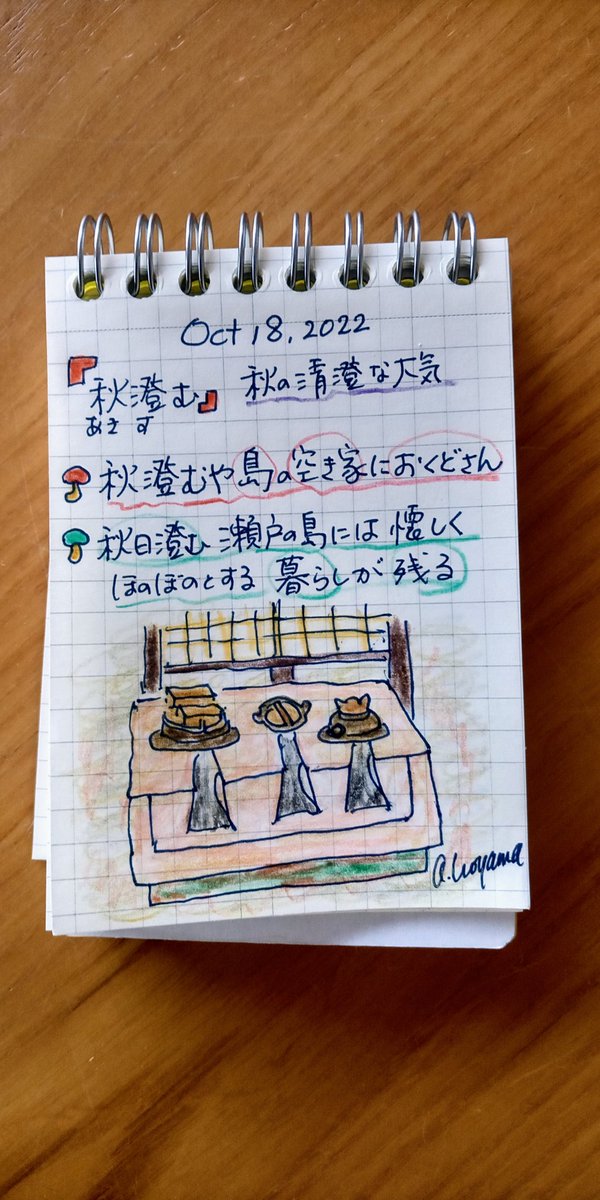 Oct 18, 2022
『秋澄む』 秋の清澄な大気
あき す
秋澄むや島の空き家におくどさん
秋日澄む 瀬戸の島には 懐しく
ほのぼのとする 暮らしが 残る